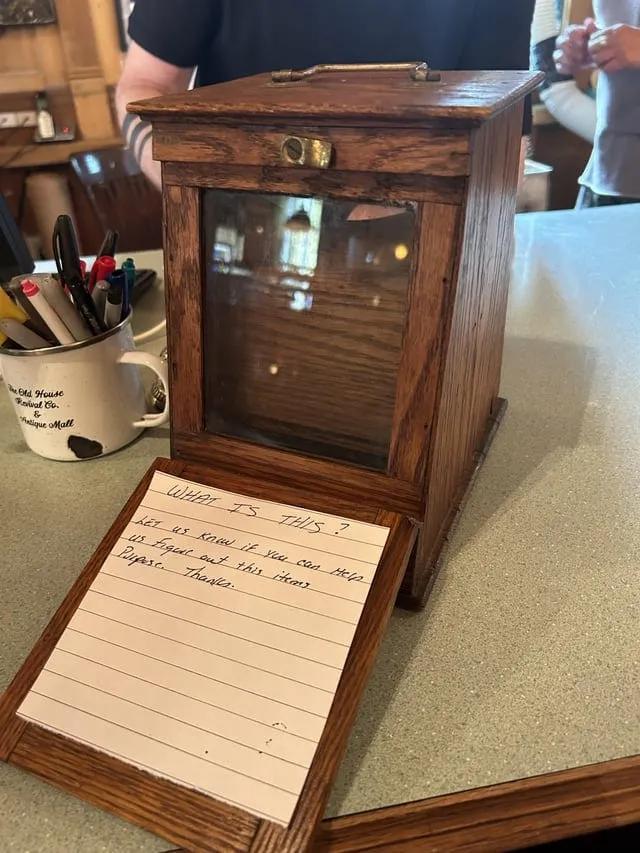 The Old House
Revival Co.
&
Antique Mall
WHAT IS THIS?
LET US KNOW IF YOU CAN HELP
US FIGURE OUT THIS ITEMS
PURPOSE. THANKS.